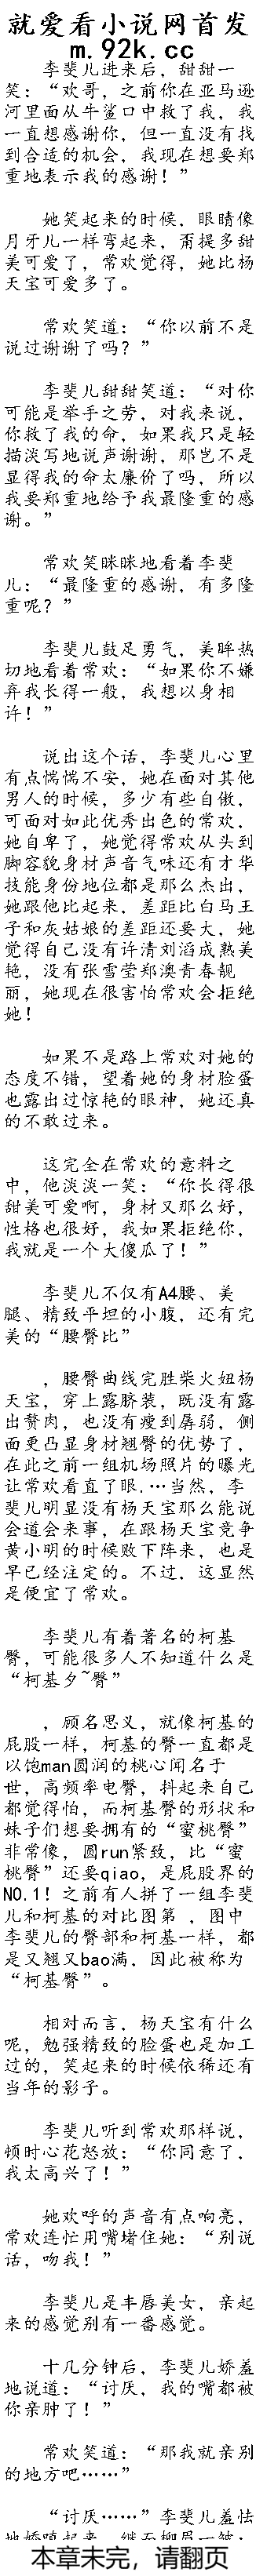 就爱看小说网首发
m.92k.cc
李斐儿进来后，甜甜一
笑：“欢哥，之前你在亚马逊
河里面从牛鲨口中救了我，我
一直想感谢你，但一直没有找
到合适的机会，我现在想要郑
重地表示我的感谢！”
她笑起来的时候，眼睛像
月牙儿一样弯起来，甭提多甜
美可爱了，常欢觉得，她比杨
天宝可爱多了。
常欢笑道：“你以前不是
说过谢谢了吗？”
李斐儿甜甜笑道：“对你
可能是举手之劳，对我来说，
你救了我的命，如果我只是轻
描淡写地说声谢谢，那岂不是
显得我的命太廉价了吗，所以
我要郑重地给予我最隆重的感
谢。”
常欢笑眯眯地看着李斐
儿：“最隆重的感谢，有多隆
重呢？”
李斐儿鼓足勇气，美眸热
切地看着常欢：“如果你不嫌
弃我长得一般，我想以身相
许！”
说出这个话，李斐儿心里
有点惴惴不安，她在面对其他
男人的时候，多少有些自傲，
可面对如此优秀出色的常欢，
她自卑了，她觉得常欢从头到
脚容貌身材声音气味还有才华
技能身份地位都是那么杰出，
她跟他比起来，差距比白马王
子和灰姑娘的差距还要大，她
觉得自己没有许清刘滔成熟美
艳，没有张雪莹郑澳青春靓
丽，她现在很害怕常欢会拒绝
她！
如果不是路上常欢对她的
态度不错，望着她的身材脸蛋
也露出过惊艳的眼神，她还真
的不敢过来。
这完全在常欢的意料之
中，他淡淡一笑：“你长得很
甜美可爱啊，身材又那么好，
性格也很好，我如果拒绝你，
我就是一个大傻瓜了！”
李斐儿不仅有A4腰、美
腿、精致平坦的小腹，还有完
美的“腰臀比”
，腰臀曲线完胜柴火妞杨
天宝，穿上露脐装，既没有露
出赘肉，也没有瘦到孱弱，侧
面更凸显身材翘臀的优势了，
在此之前一组机场照片的曝光
让常欢看直了眼.…当然，李
斐儿明显没有杨天宝那么能说
会道会来事，在跟杨天宝竞争
黄小明的时候败下阵来，也是
早已经注定的。不过，这显然
是便宜了常欢。
李斐儿有着著名的柯基
臀，可能很多人不知道什么是
“柯基夕~臀”
，顾名思义，就像柯基的
屁股一样，柯基的臀一直都是
以饱man圆润的桃心闻名于
世，高频率电臀，抖起来自己
都觉得怕，而柯基臀的形状和
妹子们想要拥有的“蜜桃臀”
非常像，圆run紧致，比“蜜
桃臀”还要qiao，是屁股界的
NO.1！之前有人拼了一组李斐
儿和柯基的对比图第 ，图中
李斐儿的臀部和柯基一样，都
是又翘又bao满，因此被称为
“柯基臀”。
相对而言，杨天宝有什么
呢，勉强精致的脸蛋也是加工
过的，笑起来的时候依稀还有
当年的影子。
李斐儿听到常欢那样说，
顿时心花怒放：“你同意了，
我太高兴了！”
她欢呼的声音有点响亮，
常欢连忙用嘴堵住她：“别说
话，吻我！”
李斐儿是丰唇美女，亲起
来的感觉别有一番感觉。
十几分钟后，李斐儿娇羞
地说道：“讨厌，我的嘴都被
你亲肿了！”
常欢笑道：“那我就亲别
的地方吧……”
“讨厌……”李斐儿羞怯
本章未完，请翻页